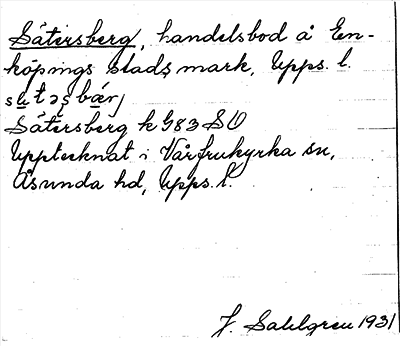 Sätersberg, handelsbod å En-
köpings stads mark, Upps. l.
Sätersberg k G83 SO
Upptecknat i Vårfrukyrka sn,
Åsunda hd, Upps. l.
J. Sahlgren 1931